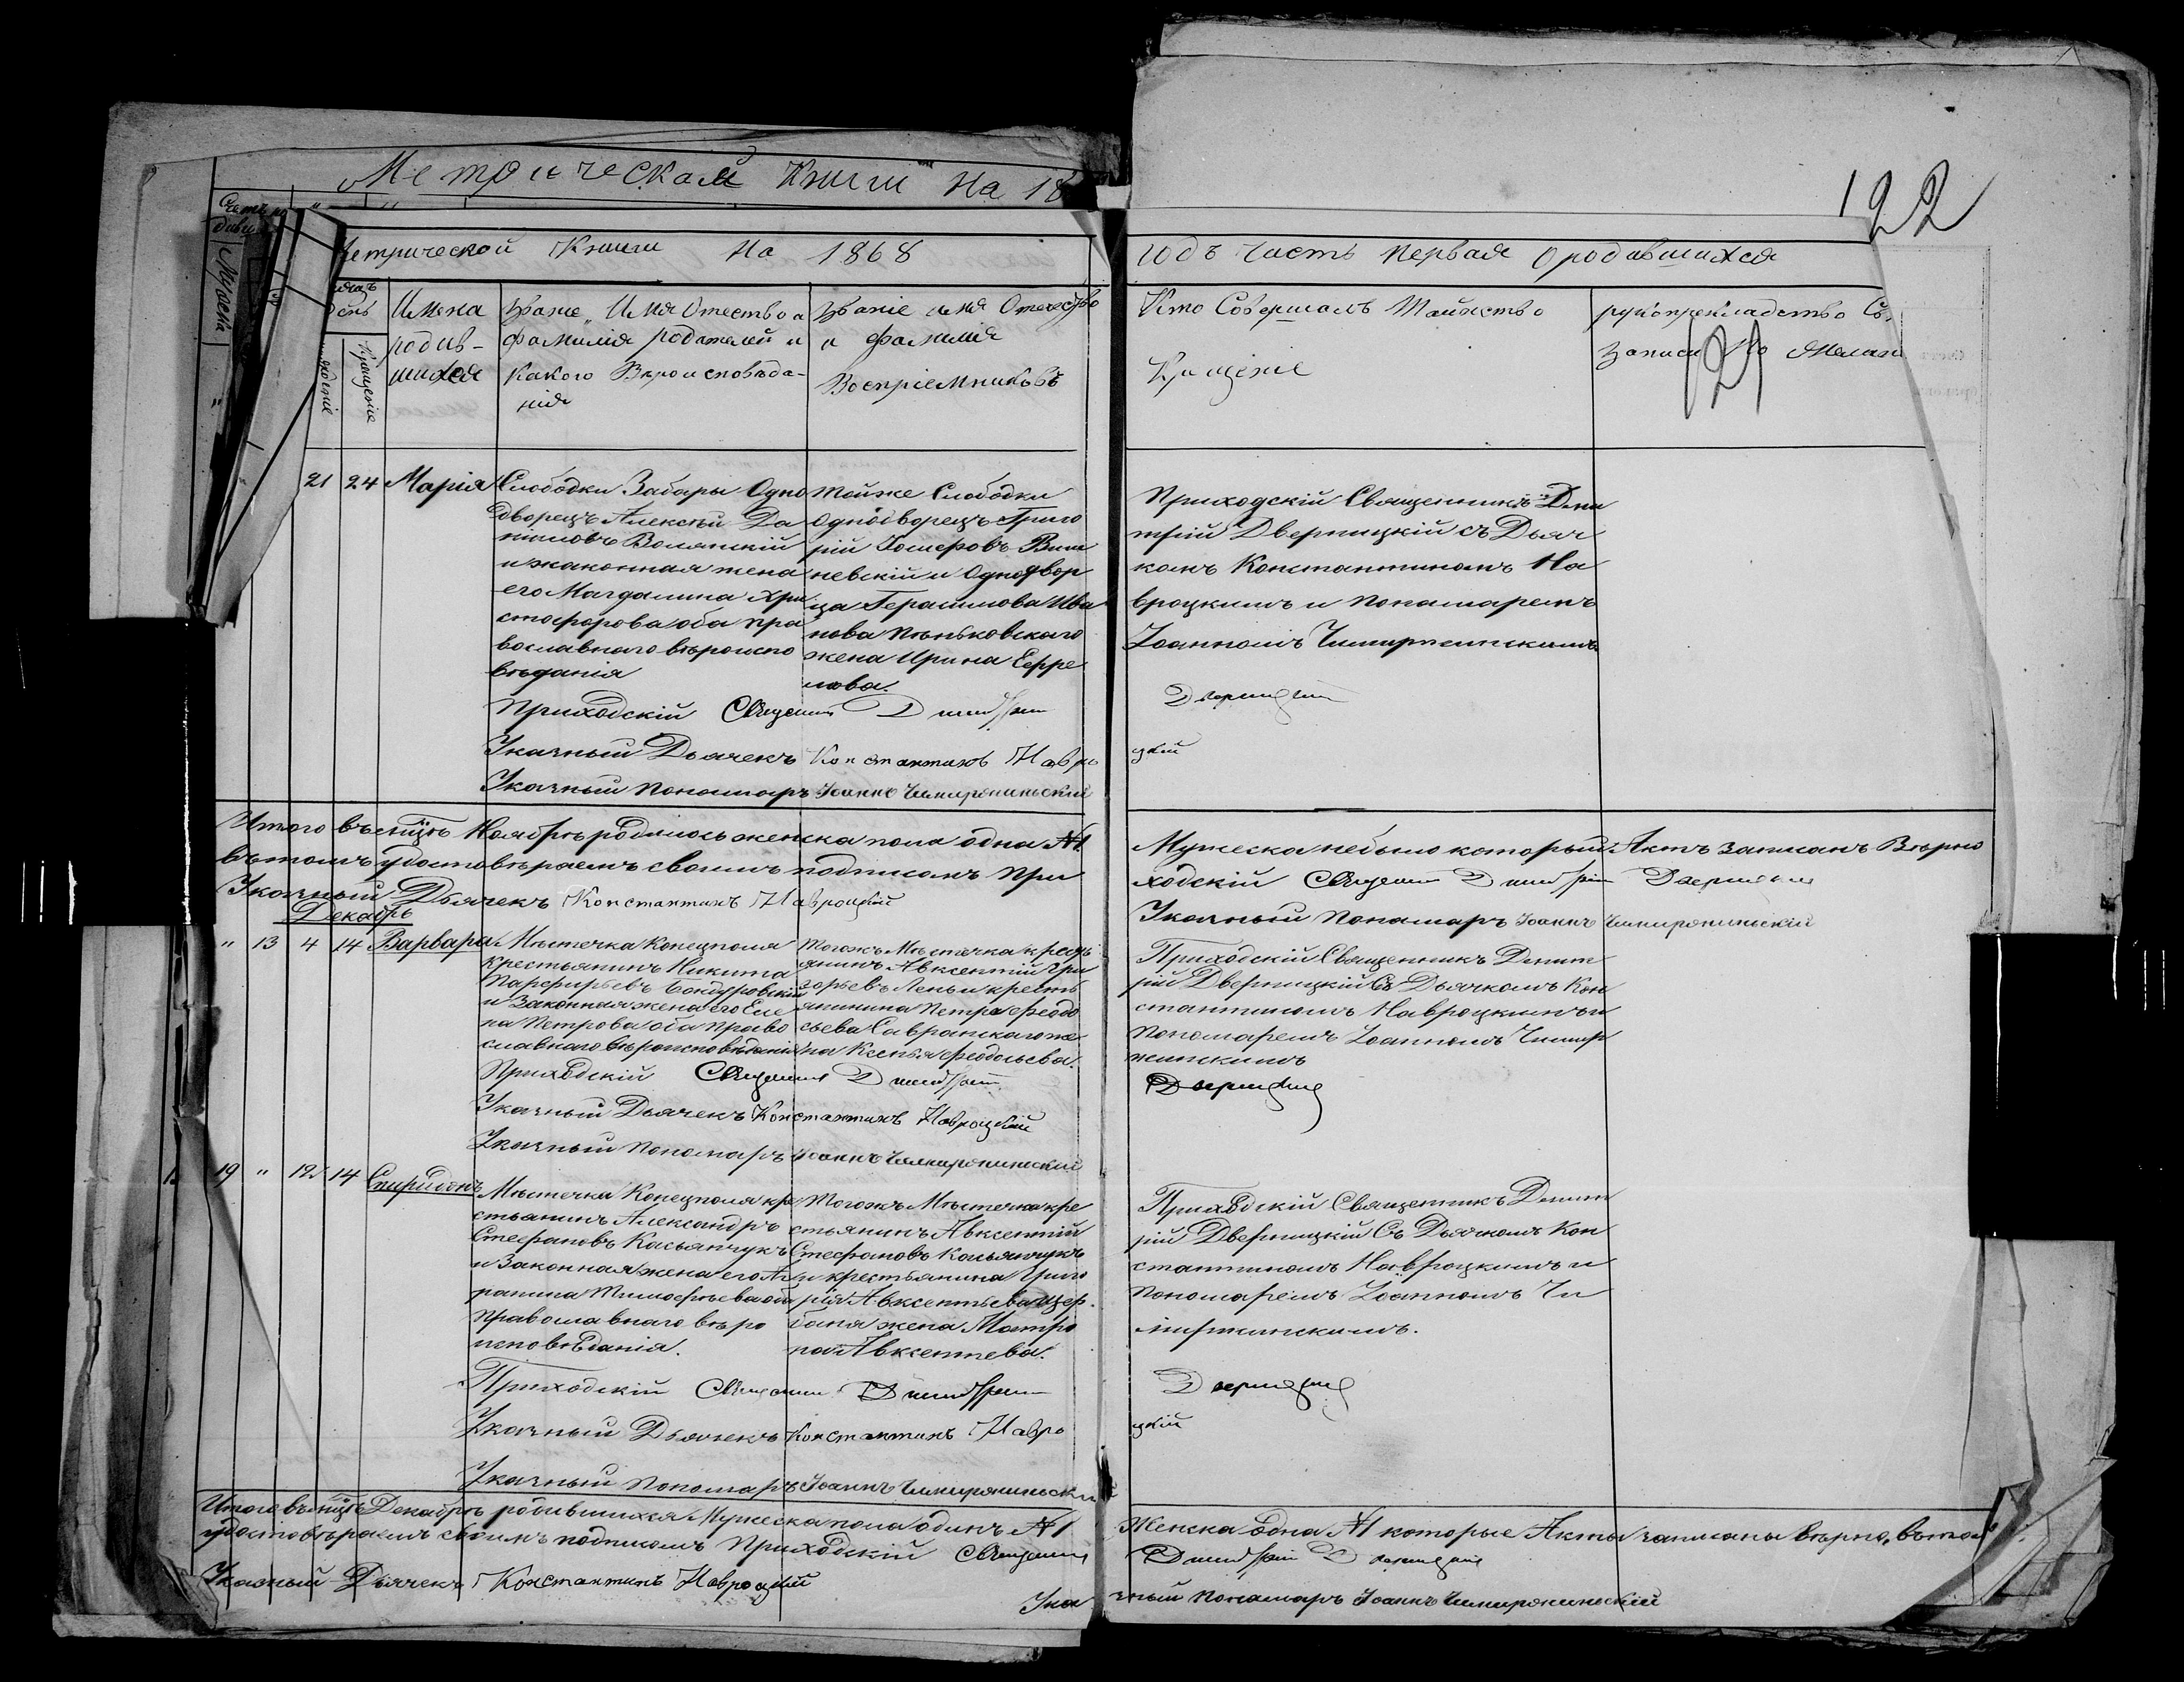 Метрической Книги на 18
122
Счетъ
Мужеска
Метрической Книги на 1868
Годъ Часть Первая О родившихся
21
Имена родив-шихся
Званіе Имя Отчество и фамилія родителей и какого Вѣроисповѣда-нія
Званіе имя Отчество и фамилія Воспріемниковъ
Крещеніе
Кто Совершалъ Таинство Крещенія
рукоприкладство Св. записи по желан
21 24 Марія
Слободки Забары Одно
дворецъ Алексѣй Да
ниловъ Волянскій
и законная жена
его Магдалина Хри
стофорова оба пра
вославнаго вѣроиспо
вѣданія
Тойже Слободки
Однодворецъ Григо
рій Іосифовъ Виш
невскій и Однодвор
ца Герасимова Ива
нова Пѣньковскаго
жена Ирина Ефре
мова.
Приходскій Священникъ Дими
трій Дверницкій съ Дьяч
комъ Константиномъ На
вроцкимъ и Пономаремъ
Іоанномъ Чимиржинскимъ
Приходскій Священникъ Димитрій
Дверницкій
Указный Дьячекъ Константинъ Навро
цкій
Указный Пономаръ Іоаннъ Чимиржинскій
Итого въ мцѣ Ноябрѣ родилось женска пола одна №1
Мужеска небыло который Актъ записанъ Вѣрно
въ томъ удостовѣряемъ своимъ подписомъ При
ходскій Священникъ Димитрій Дверницкій
Указный Дьячекъ Константинъ Навроцкій
Указный Пономаръ Іоаннъ Чимиржинскій
Декабрь
" 13 4 14 Варвара
Мѣстечка Конецполя
крестьянинъ Никита
Парфирьевъ Бондуровскій
и Законная жена его Еле
на Петрова оба Право
славнаго вѣроисповѣданія
Тогожъ Мѣстечка кресть
янинъ Авксентій Гри
горьевъ Лень и кресть
янина Петра Феодо
сьева Савранскаго же
на Ксенія Феодосьева.
Приходскій Священникъ Димит
рій Дверницкій Съ Дьячкомъ Кон
стантиномъ Навроцкимъ и
Пономаремъ Іоанномъ Чимир
жинскимъ
Приходскій Священникъ Димитрій
Дверницкій
Указный Дьячекъ Константинъ Навроцкій
Указный Пономаръ Іоаннъ Чимиржинскій
19 " 12 14 Спиридонъ
Мѣстечка Конецполя кре
стьянинъ Александръ
Стефановъ Касьянчукъ
и Законная жена его Аг
рапина Тимофѣева оба
Православнаго вѣро
исповѣданія.
Тогожъ Мѣстечка кре
стьянинъ Авксентій
Стефановъ Касьянчукъ
и крестьянина Григо
рія Авксентьева Щер
баня жена Матро
на Авксентева.
Приходскій Священникъ Димит
рій Дверницкій Съ Дьячкомъ Кон
стантиномъ Навроцкимъ и
Пономаремъ Іоанномъ Чи
миржинскимъ.
Приходскій Священникъ Димитрій
Дверницкій
Указный Дьячекъ Константинъ Навро
цкій
Указный Пономаръ Іоаннъ Чимиржинскій
Итого въ мцѣ Декабрѣ родившихся Мужеска пола одинъ №1
Женска одна №1 которые Акты записаны вѣрно, въ томъ
удостовѣряемъ своимъ подписомъ Приходскій Священникъ
Димитрій Дверницкій
Указный Дьячекъ Константинъ Навроцкій
Ука
зный Пономаръ Іоаннъ Чимиржинскій